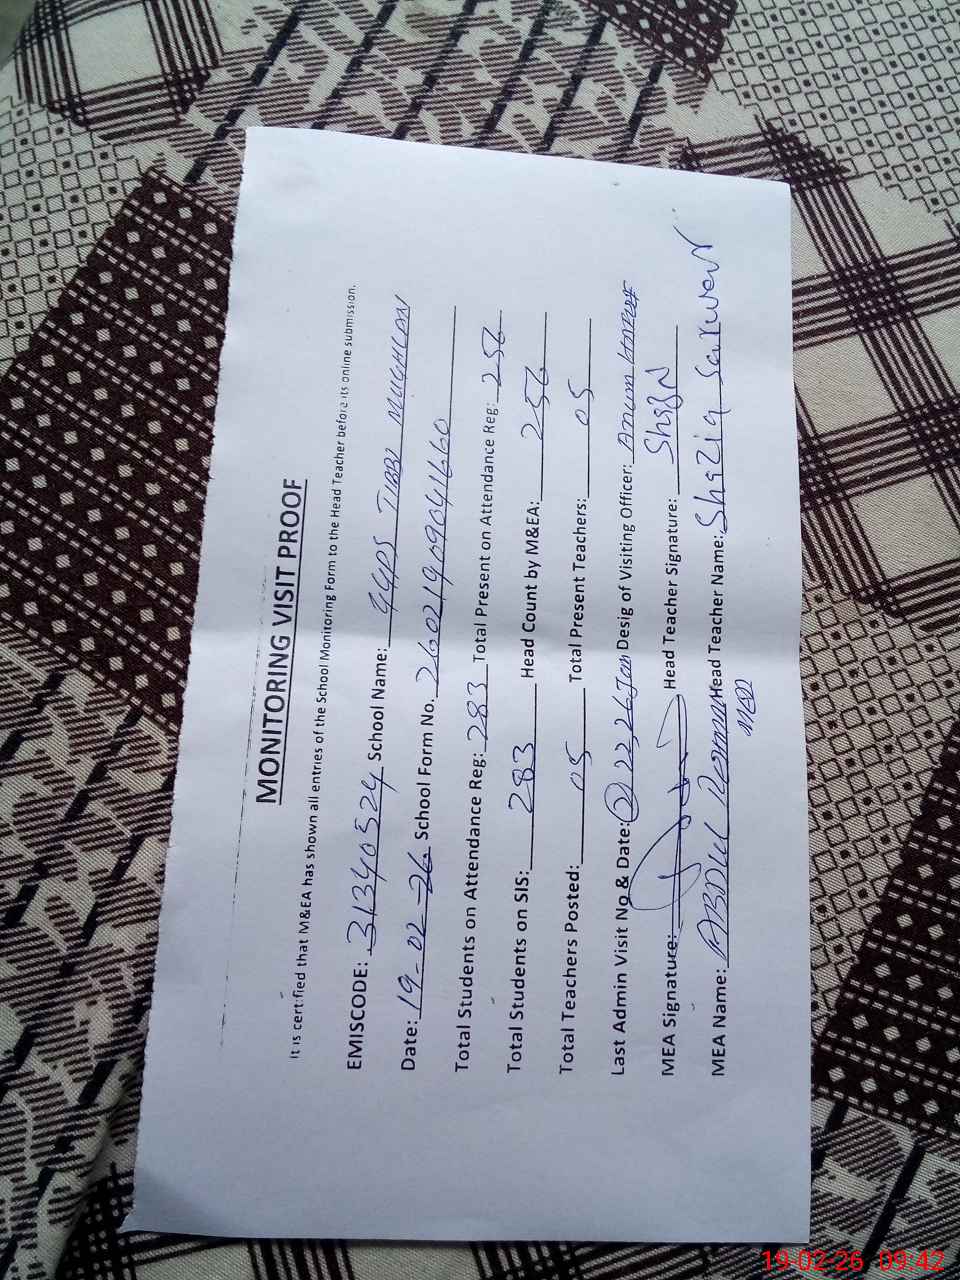 MONITORING VISIT PROOF
It is certified that M&EA has shown all entries of the School Monitoring Form to the Head Teacher before its online submission.
EMISCODE: 31340524 School Name: GGPS TIBBI MUGHLAN
Date: 19-02-26 School Form No. 26021909041660
Total Students on Attendance Reg: 283 Total Present on Attendance Reg: 256
Total Students on SIS: 283 Head Count by M&EA: 256
Total Teachers Posted: 05 Total Present Teachers: 05
Last Admin Visit No & Date: 2 22,26 Jan Desig of Visiting Officer: Anum
MEA Signature: Head Teacher Signature: Shazia
MEA Name: ABDUL Head Teacher Name: Shazia Sarwar
19-02-26 09:42